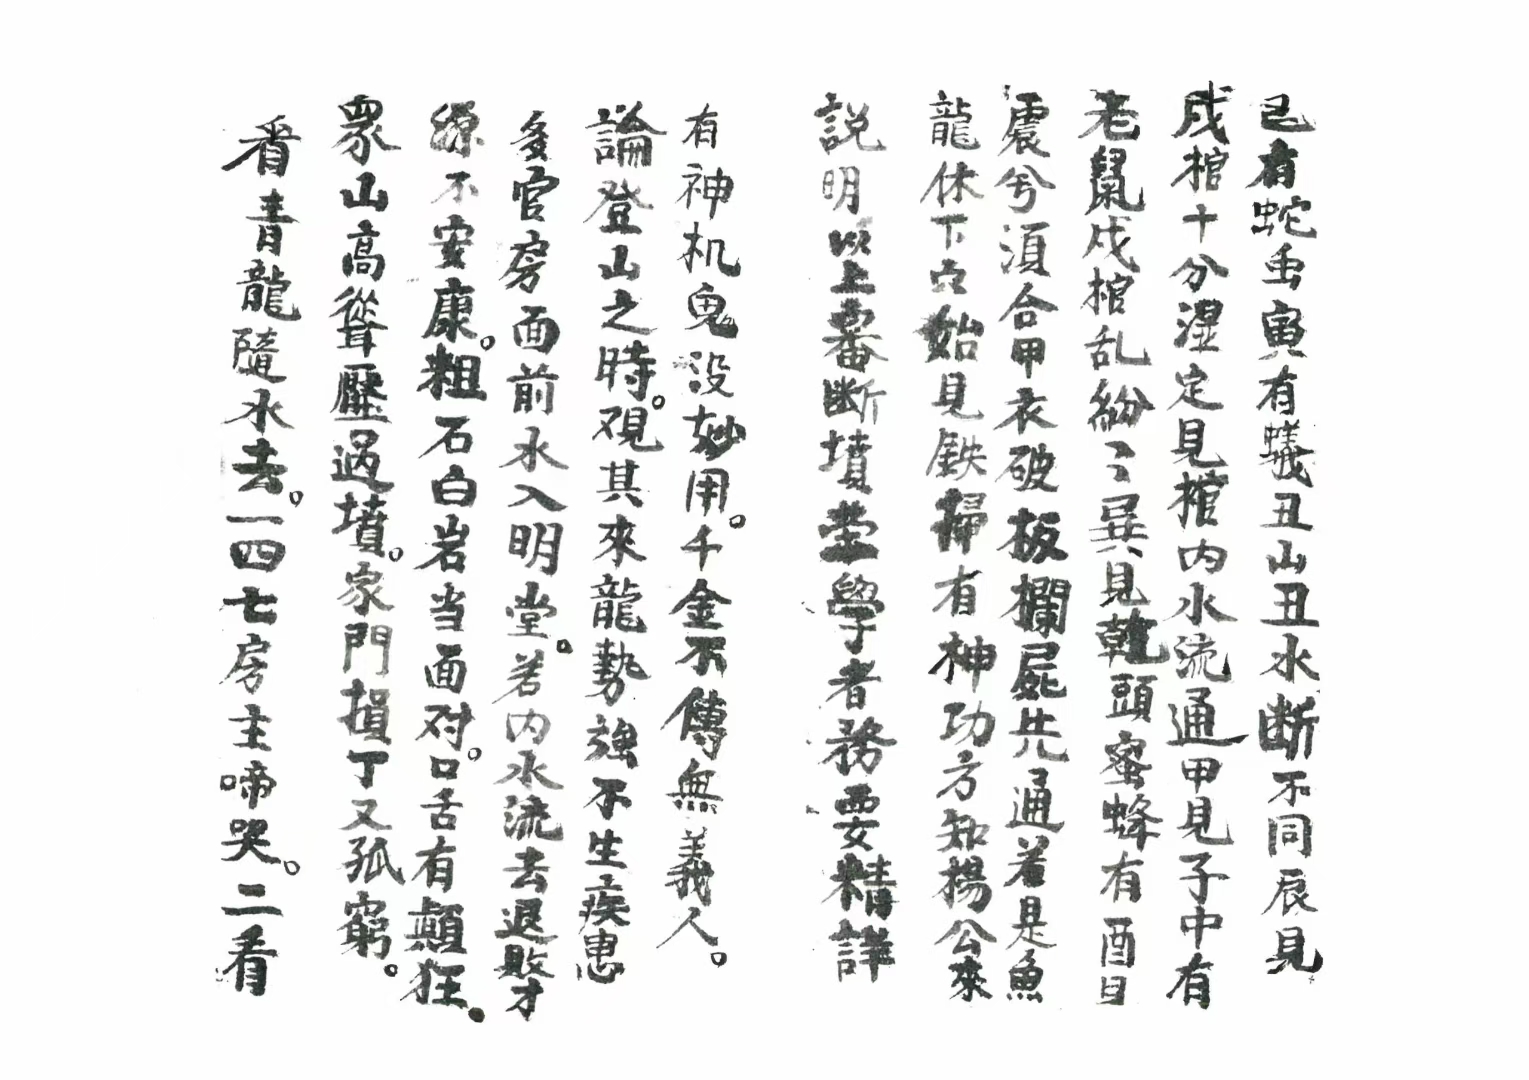 已有蛇虫寅有蟻丑山丑水断不同辰見
戌棺十分湿定見棺内水流通甲見子中有
老鼠戌棺乱紛〻巽見乾頭蜜蜂有酉日
震兮須合甲衣破板欄屍先通若是魚
龍休下穴始見鉄掃有神功方知楊公來
説明以上審断墳塋學者務要精詳
有神机鬼没妙用。千金不傳無義人。
論登山之時。观其來龍勢強不生疾患
多官房面前水入明堂。若内水流去退敗才
源不安康。粗石白岩当面对。口舌有顛狂。
眾山高聳壓過墳。家門損丁又孤窮。
看青龍隨水去。一四七房主啼哭。二看